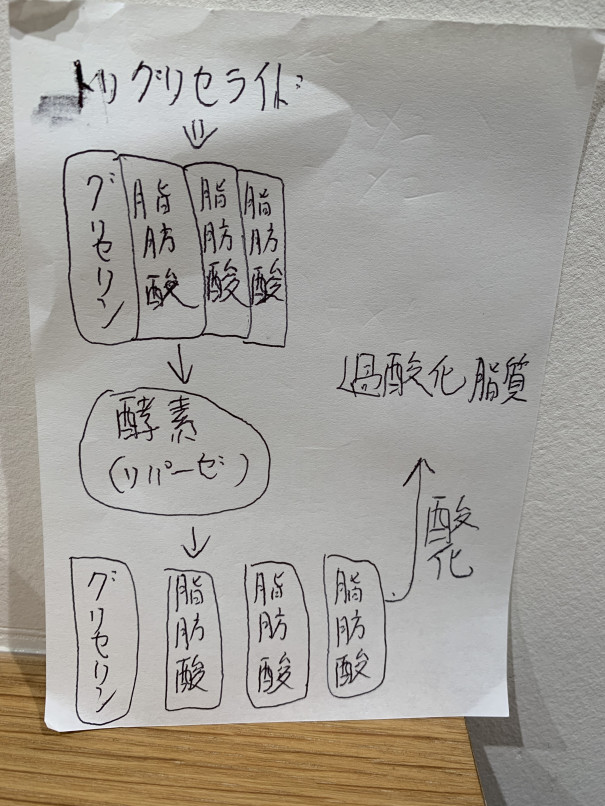 トリグリセライド
グリセリン
脂肪酸
脂肪酸
脂肪酸
酵素
(リパーゼ)
グリセリン
脂肪酸
脂肪酸
脂肪酸
酸化
過酸化脂質